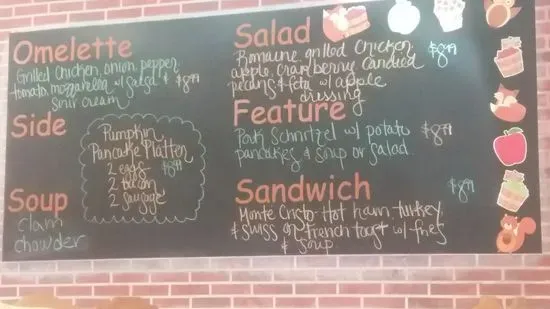 Omelette
Grilled Chicken, onion, pepper,
tomato, mozzarella w/ Salsa & $8.99
Sour Cream
Side
Pumpkin
Pancake Platter
2 eggs $8.99
2 bacon
2 Sausage
Soup
Clam
Chowder
Salad
Romaine, grilled Chicken, $8.99
apple, Cranberry, Candied
pecans & feta w/ apple
dressing
Feature
Pork Schnitzel w/ potato $8.99
pancakes & Soup or Salad
Sandwich $8.99
Monte Cristo- Hot ham, turkey,
& Swiss on French Toast w/ fries
& Soup